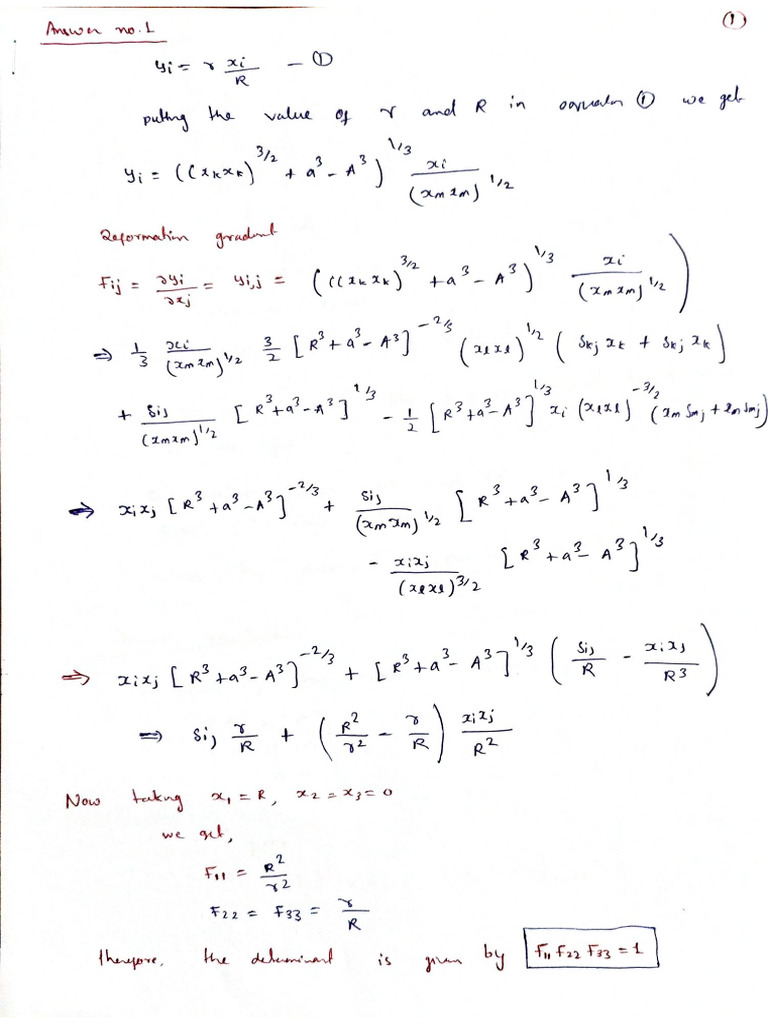 Answer no. 1
①
yi = r xi/R — ①
putting the value of r and R in equation ① we get
yi = ((xkxk)^3/2 + a^3 - A^3)^1/3 xi/(xmxm)^1/2
Deformation gradient
Fij = ∂yi/∂xj = yi,j = (((xkxk)^3/2 + a^3 - A^3)^1/3 xi/(xmxm)^1/2)
⇒ 1/3 xi/(xmxm)^1/2 3/2 [R^3 + a^3 - A^3]^-2/3 (xlxl)^1/2 (δkj xk + δkj xk)
+ δij/(xmxm)^1/2 [R^3 + a^3 - A^3]^1/3 - 1/2 [R^3 + a^3 - A^3]^1/3 xi (xlxl)^-3/2 (xm δmj + xm δmj)
⇒ xixj [R^3 + a^3 - A^3]^-2/3 + δij/(xmxm)^1/2 [R^3 + a^3 - A^3]^1/3
- xixj/(xlxl)^3/2 [R^3 + a^3 - A^3]^1/3
⇒ xixj [R^3 + a^3 - A^3]^-2/3 + [R^3 + a^3 - A^3]^1/3 (δij/R - xixj/R^3)
⇒ δij r/R + (R^2/r^2 - r/R) xixj/R^2
Now taking x1 = R, x2 = x3 = 0
we get,
F11 = R^2/r^2
F22 = F33 = r/R
therefore, the determinant is given by F11 F22 F33 = 1